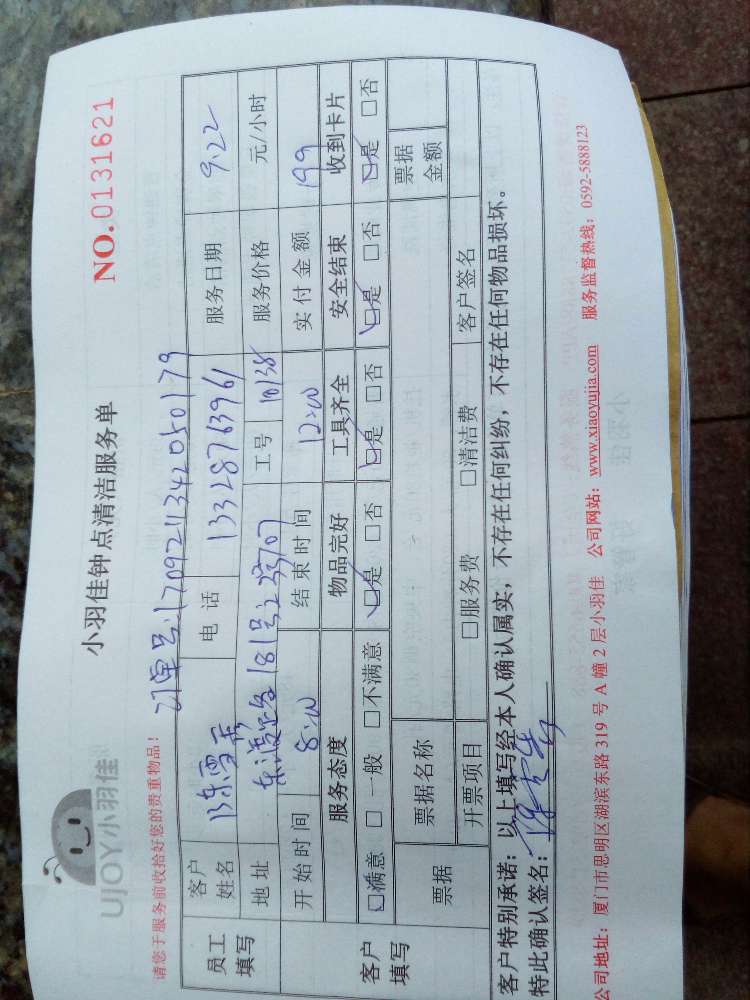 UJOY小羽佳
小羽佳钟点清洁服务单
NO.0131621
请您于服务前收拾好您的贵重物品!
订单号:1709211342050179
员工填写
客户姓名
电话 13328763961
服务日期 9.22
地址
181号
工号 10138
服务价格 元/小时
开始时间 8:00
结束时间 12:00
实付金额 199
客户填写
服务态度 物品完好 工具齐全 安全结束 收到卡片
□满意 □一般 □不满意 □是 □否 □是 □否 □是 □否 □是 □否
票据
票据名称
票据金额
开票项目 □服务费 □清洁费 客户签名
客户特别承诺:以上填写经本人确认属实,不存在任何纠纷,不存在任何物品损坏。
特此确认签名:
公司地址:厦门市思明区湖滨东路 319 号 A 幢 2 层小羽佳 公司网站:www.xiaoyujia.com 服务监督热线:0592-5888123